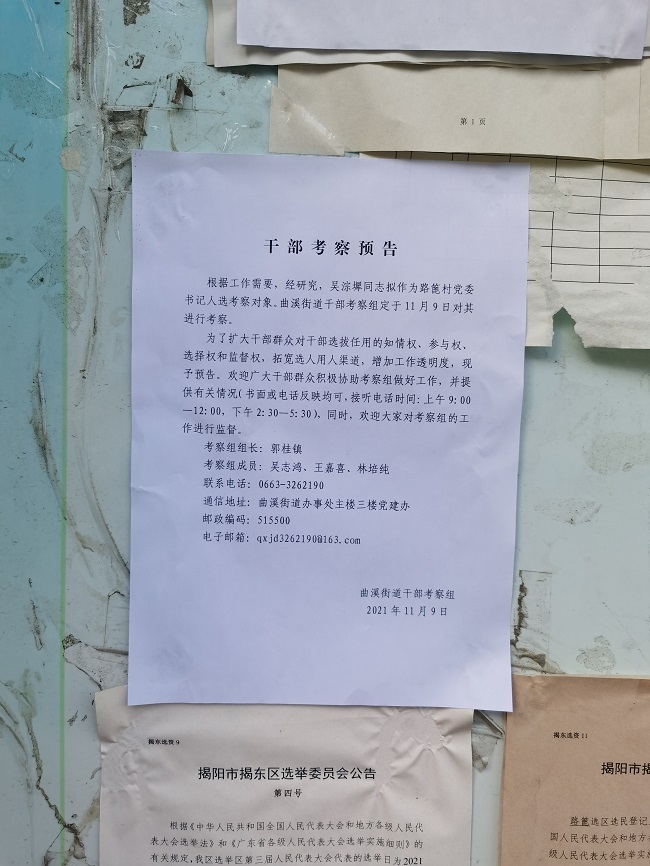 第 1 页
干部考察预告
根据工作需要，经研究，吴淙墀同志拟作为路篦村党委
书记人选考察对象。曲溪街道干部考察组定于11月9日对其
进行考察。
为了扩大干部群众对干部选拔任用的知情权、参与权、
选择权和监督权，拓宽选人用人渠道，增加工作透明度，现
予预告。欢迎广大干部群众积极协助考察组做好工作，并提
供有关情况(书面或电话反映均可，接听电话时间：上午9:00
—12:00，下午2:30—5:30)，同时，欢迎大家对考察组的工
作进行监督。
考察组组长：郭桂镇
考察组成员：吴志鸿、王嘉喜、林培纯
联系电话：0663-3262190
通信地址：曲溪街道办事处主楼三楼党建办
邮政编码：515500
电子邮箱：qxjd3262190@163.com
曲溪街道干部考察组
2021年11月9日
揭东选资9
揭阳市揭东区选举委员会公告
第四号
根据《中华人民共和国全国人民代表大会和地方各级人民代
表大会选举法》和《广东省各级人民代表大会选举实施细则》的
有关规定，我区选举区第三届人民代表大会代表的选举日为2021
揭东选资11
揭阳市揭
路篦选区选民登记
国人民代表大会和地
级人民代表大会选